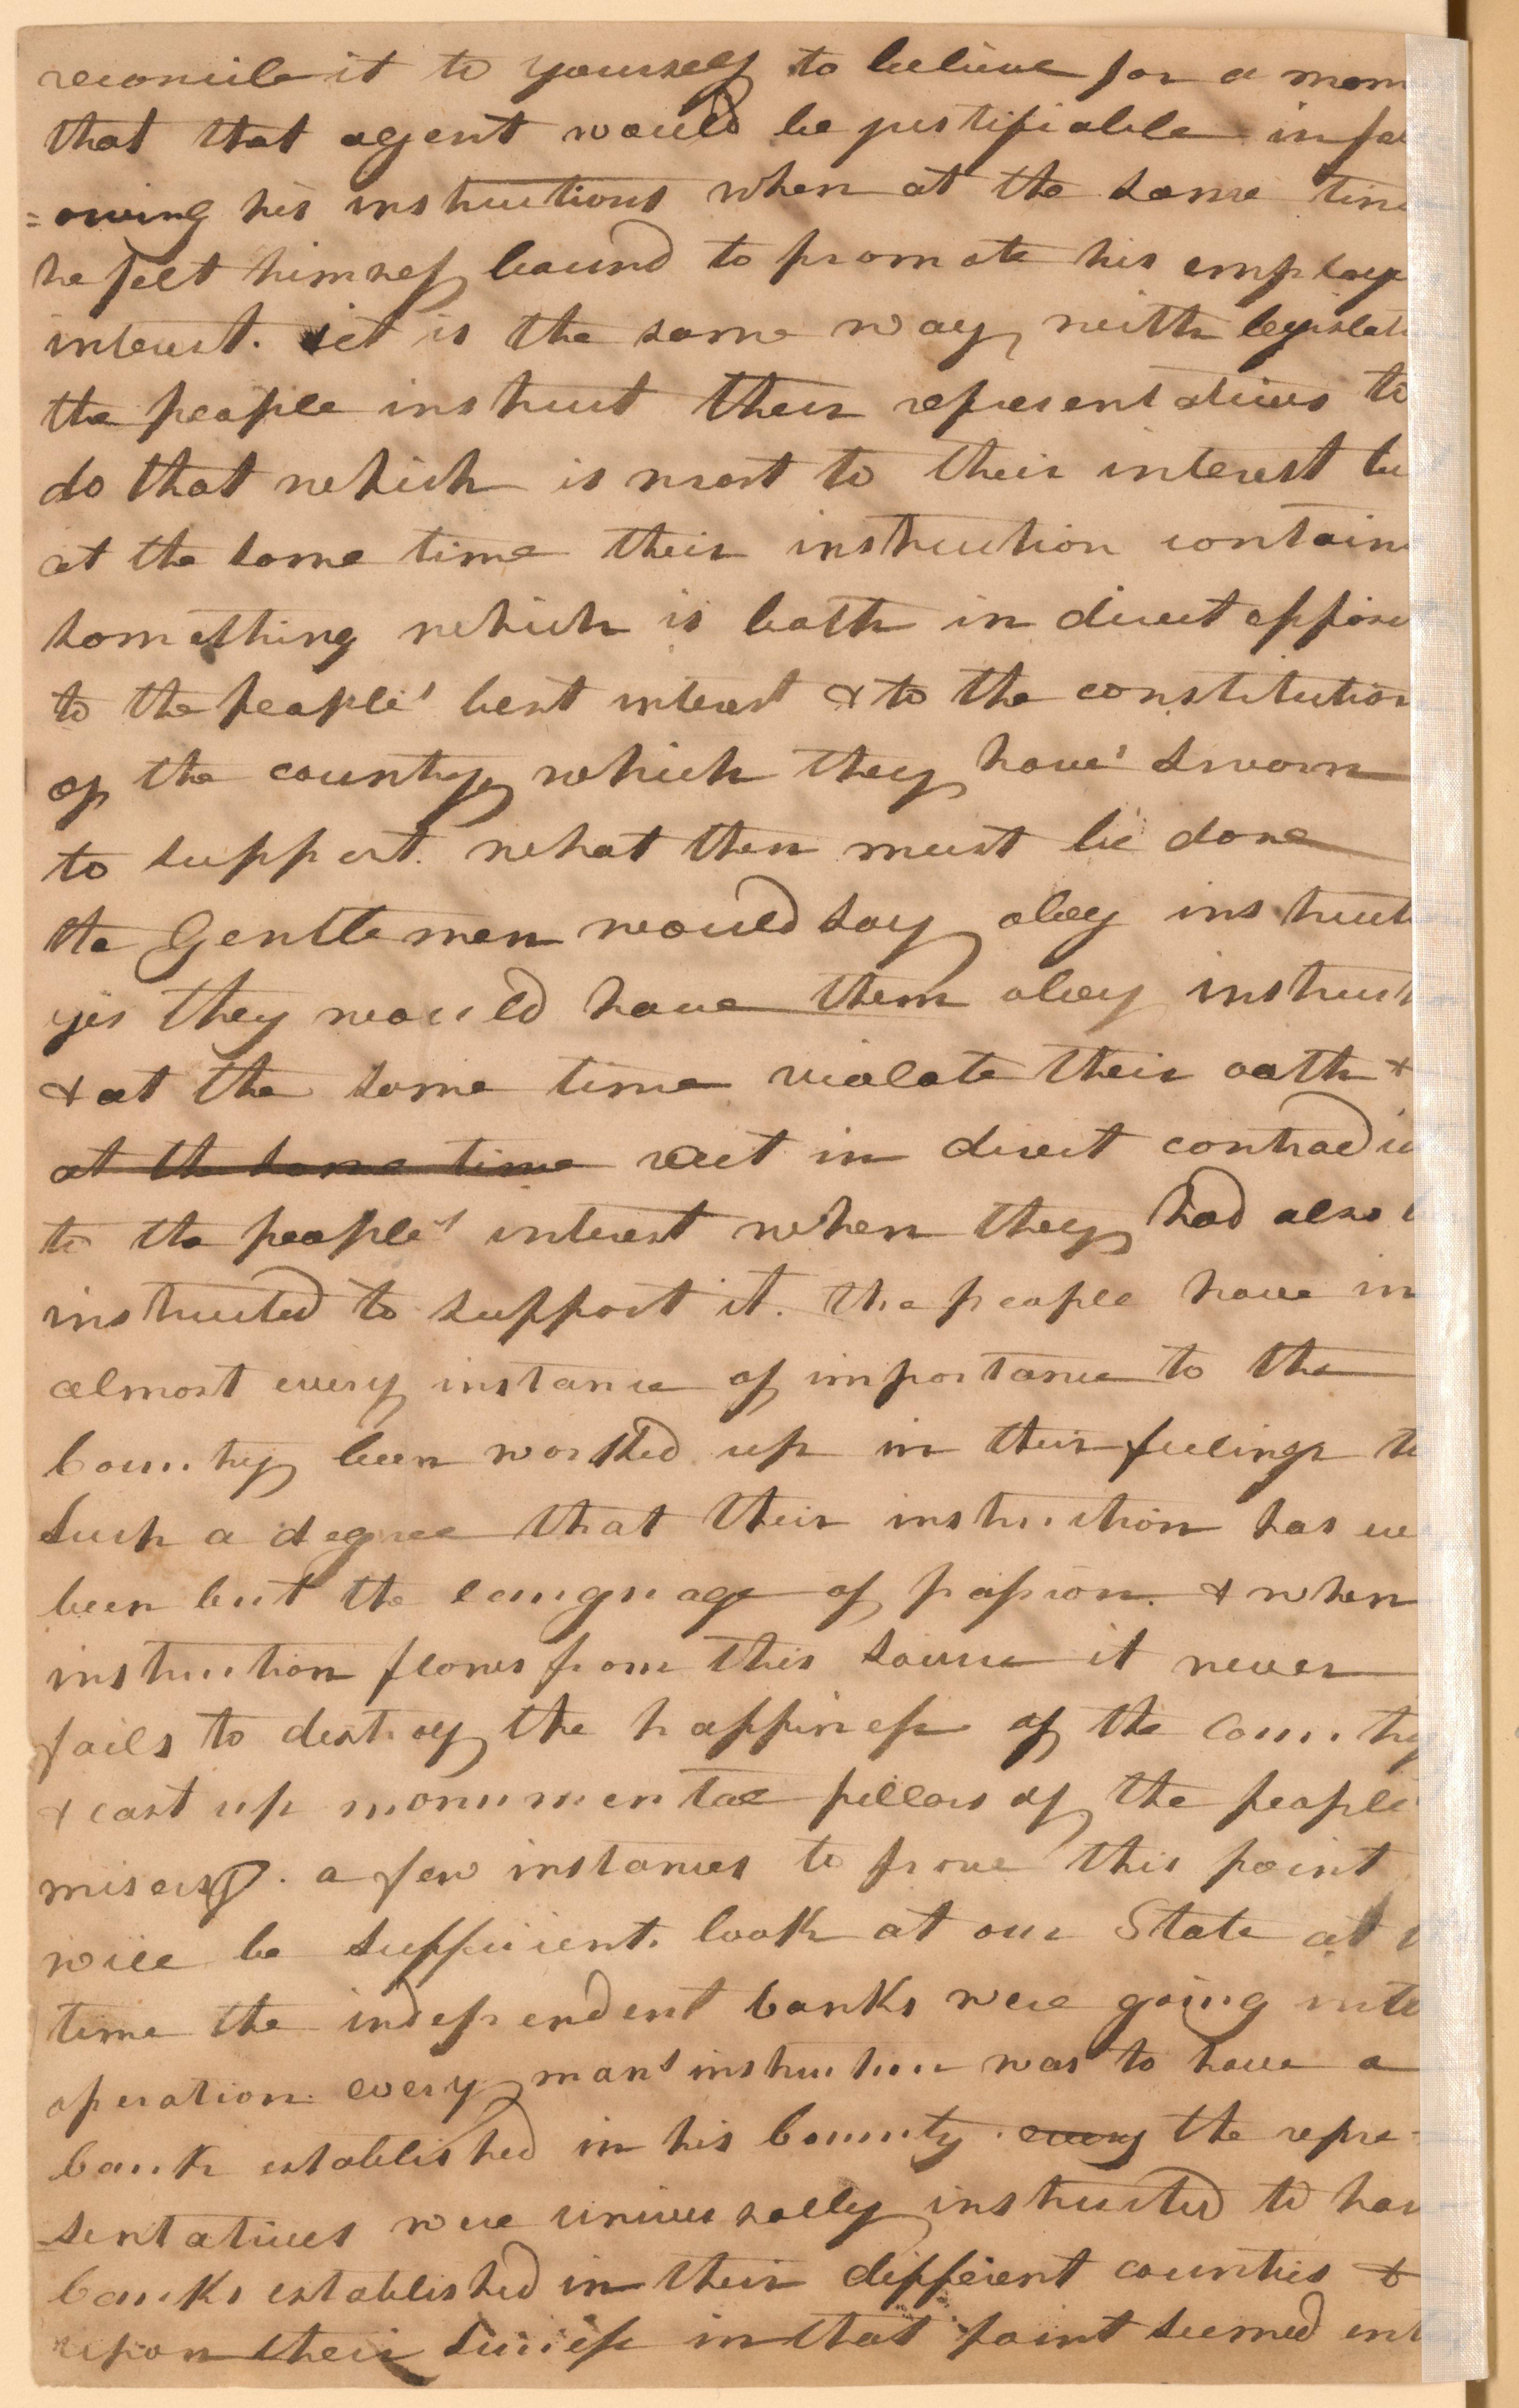 reconcile it to yourself to believe for a mom
that that agent would be justifiable in fol
=owing his instructions when at the same time
he felt himself bound to promote his employe
interest. it is the same way with legislat
the people instruct their representatives to
do that which is most to their interest bu
at the same time their instruction contain
something which is both in direct opposi
to the people' best interest & to the constitution
of the country, which they have' sworn
to support. what then must be done
the Gentlemen would say obey instruct
yes they would have them obey instruct
& at the same time violate their oath &
at the same time act in direct contradic
to the people's interest when they had also b
instructed to support it. the people have in
almost every instance of importance to the
Country been worked up in their feelings to
such a degree that their instruction has ev
been but the language of passion. & when
instruction flows from this source it never
fails to destroy the happiness of the Country
& cast up monumental pillars of the people'
misery. a few instances to prove this point
will be sufficient. look at our State at t
time the independent banks were going into
operation. every man's instruction was to have a
bank established in his County. every the repre-
-sentatives were universally instructed to hav
banks established in their different counties &
upon their success in that point seemed ent